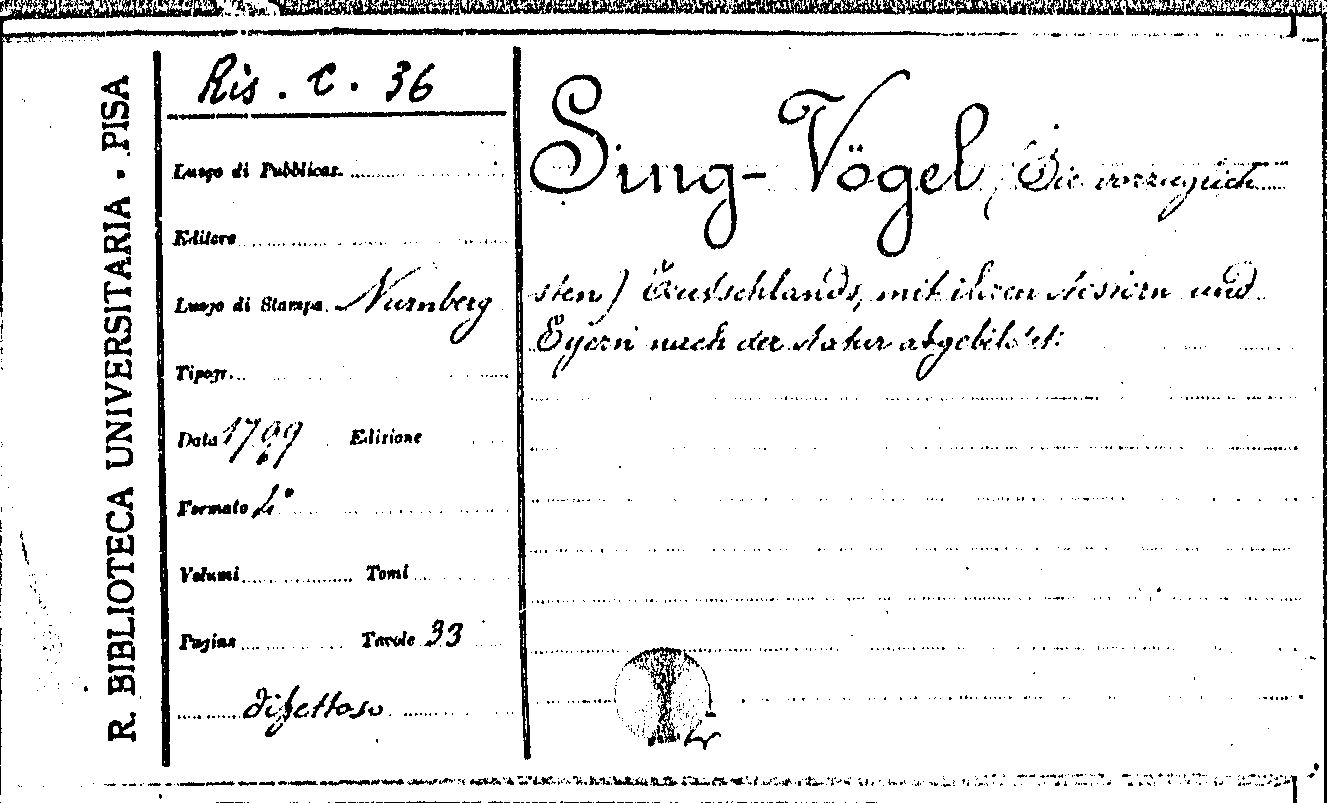 R. BIBLIOTECA UNIVERSITARIA - PISA
Ris. C. 36
Luogo di Pubblicaz.
Editore
Luogo di Stampa. Nurnberg
Tipogr.
Data 1799 Edizione
Formato 4°
Volumi Tomi
Pagine Tavole 33
difettoso
Sing-Vögel (Die vorzüglich
sten) Deutschlands, mit ihren Nestern und
Eyern nach der Natur abgebildet.